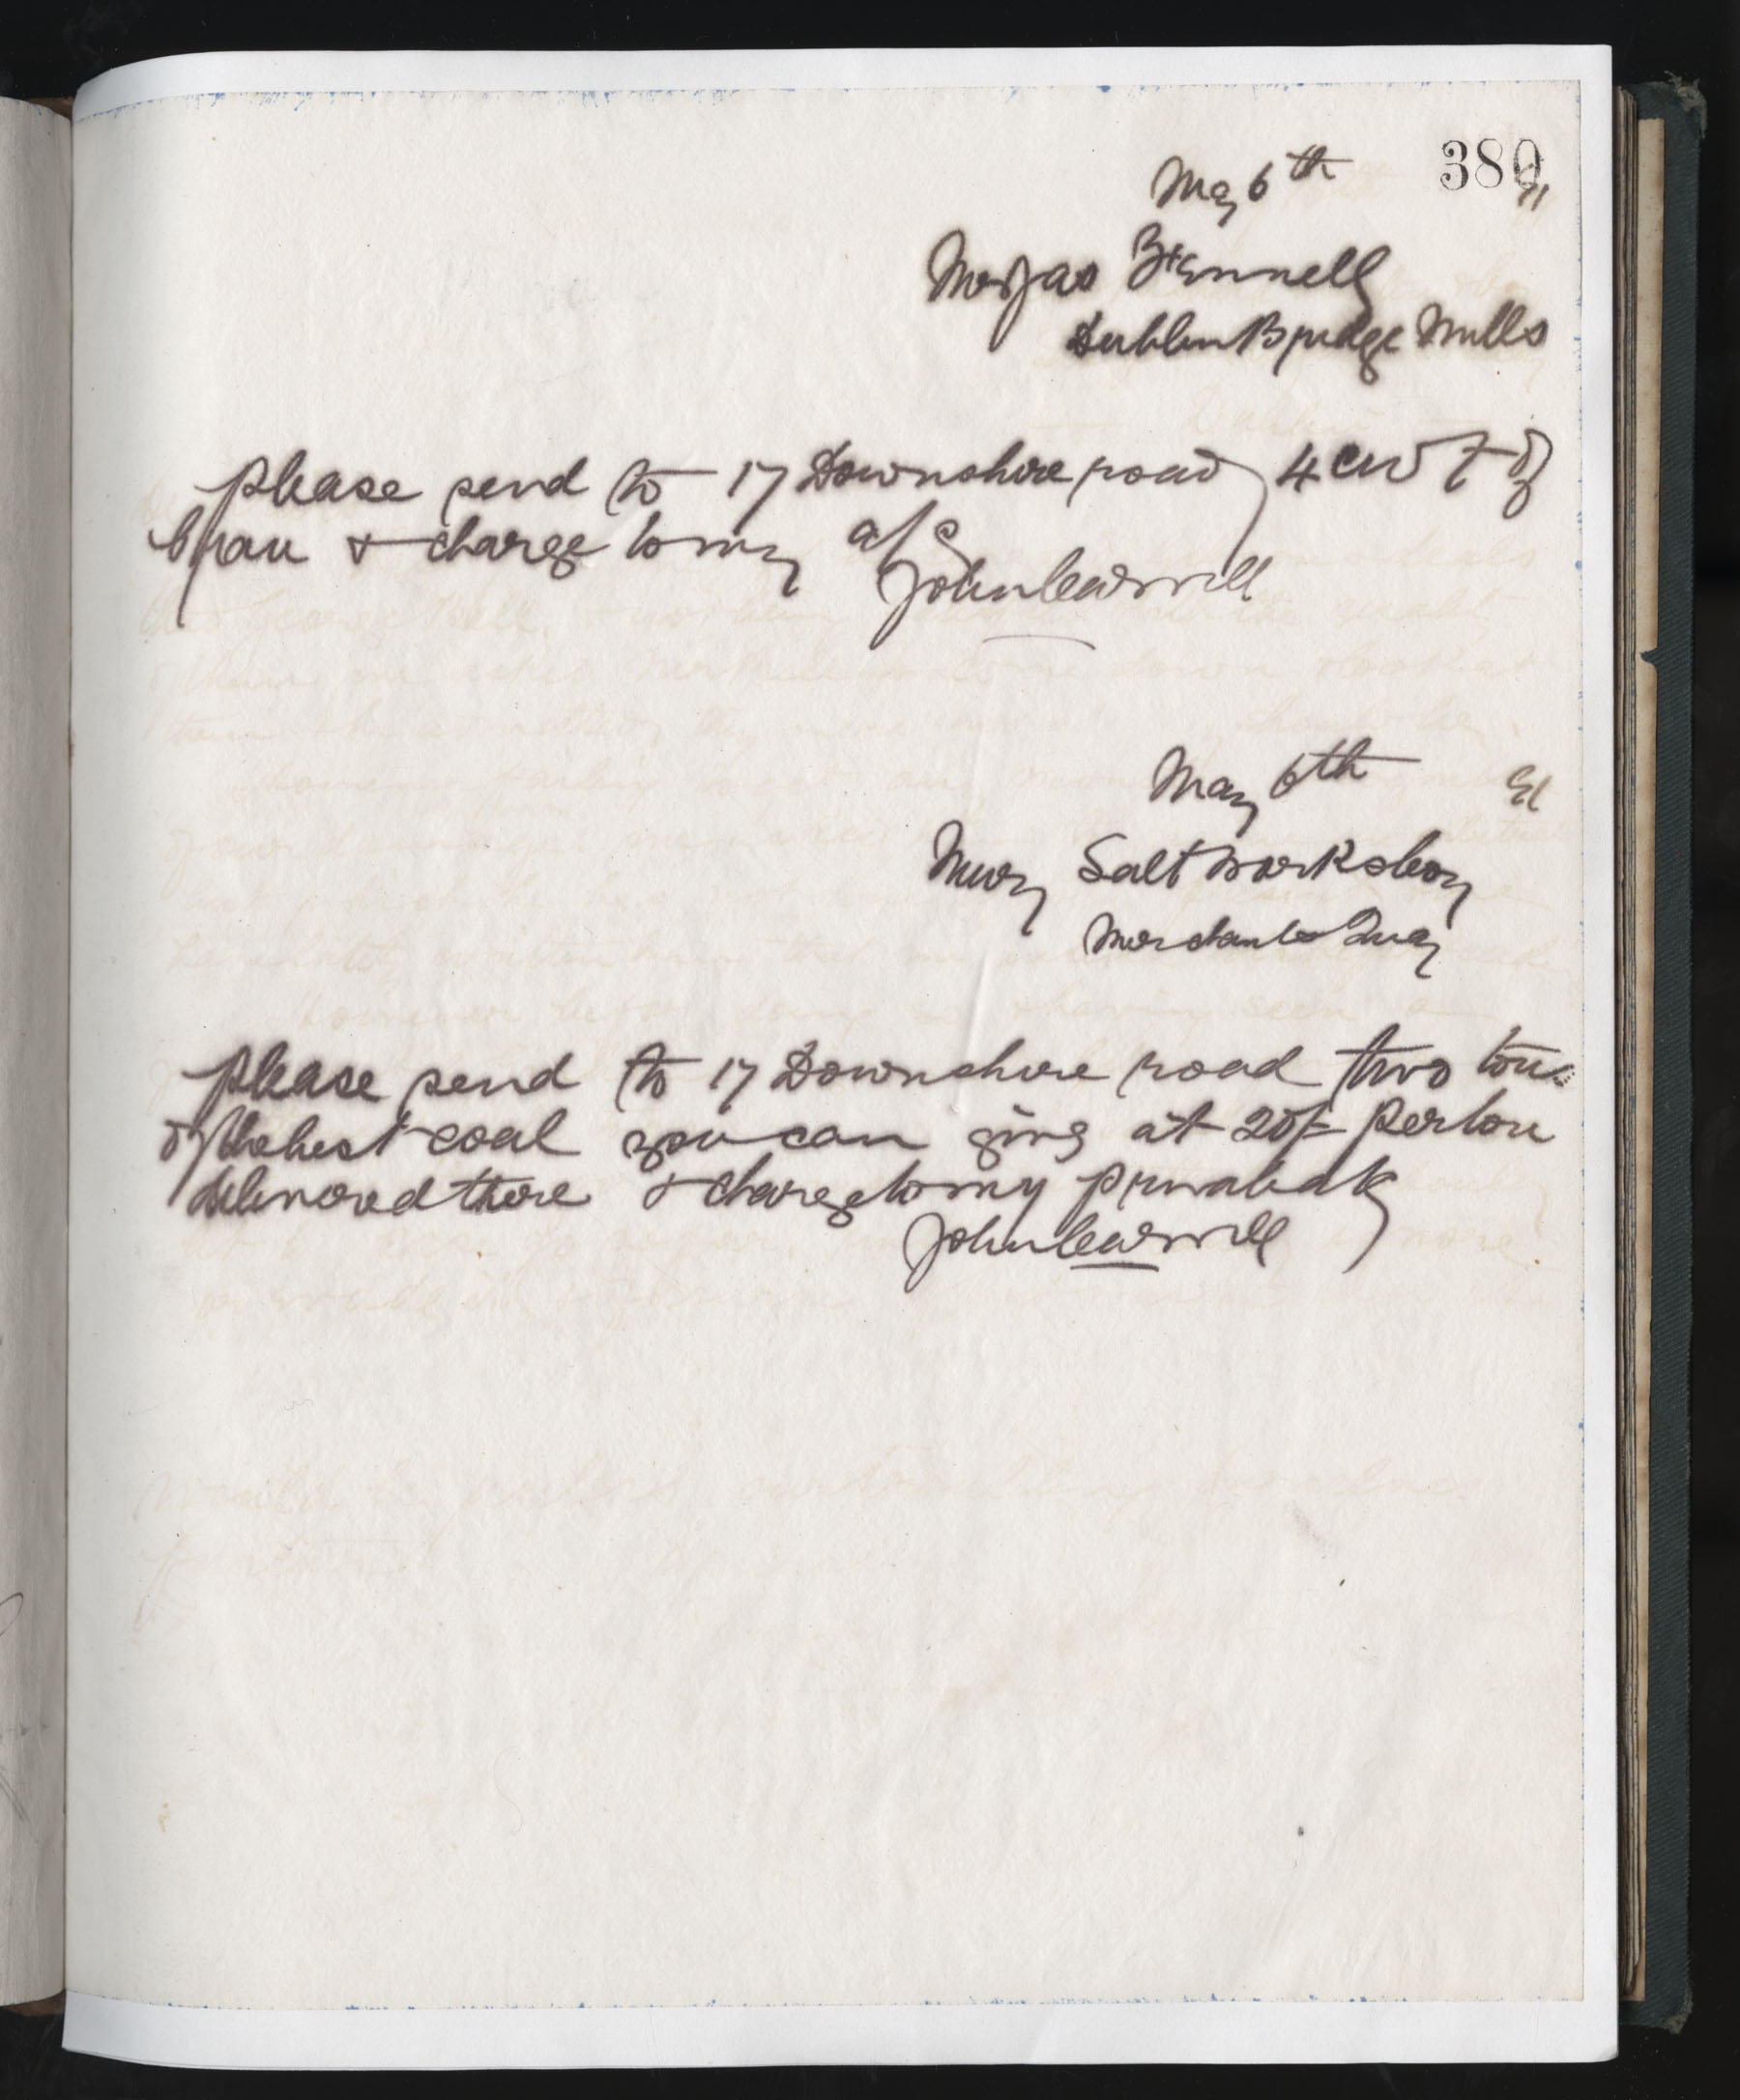 380
May 6th 91
Mr Jas Fennell
Dublin Bridge Mills
please send to 17 Downshire road 4 cwt of
bran & charge to my a/c
John
May 6th 91
Newry Salt Works Coy
Merchants Quay
please send to 17 Downshire road two tons
of the best coal you can give at 20/- per ton
delivered there & charge to my private a/c
John